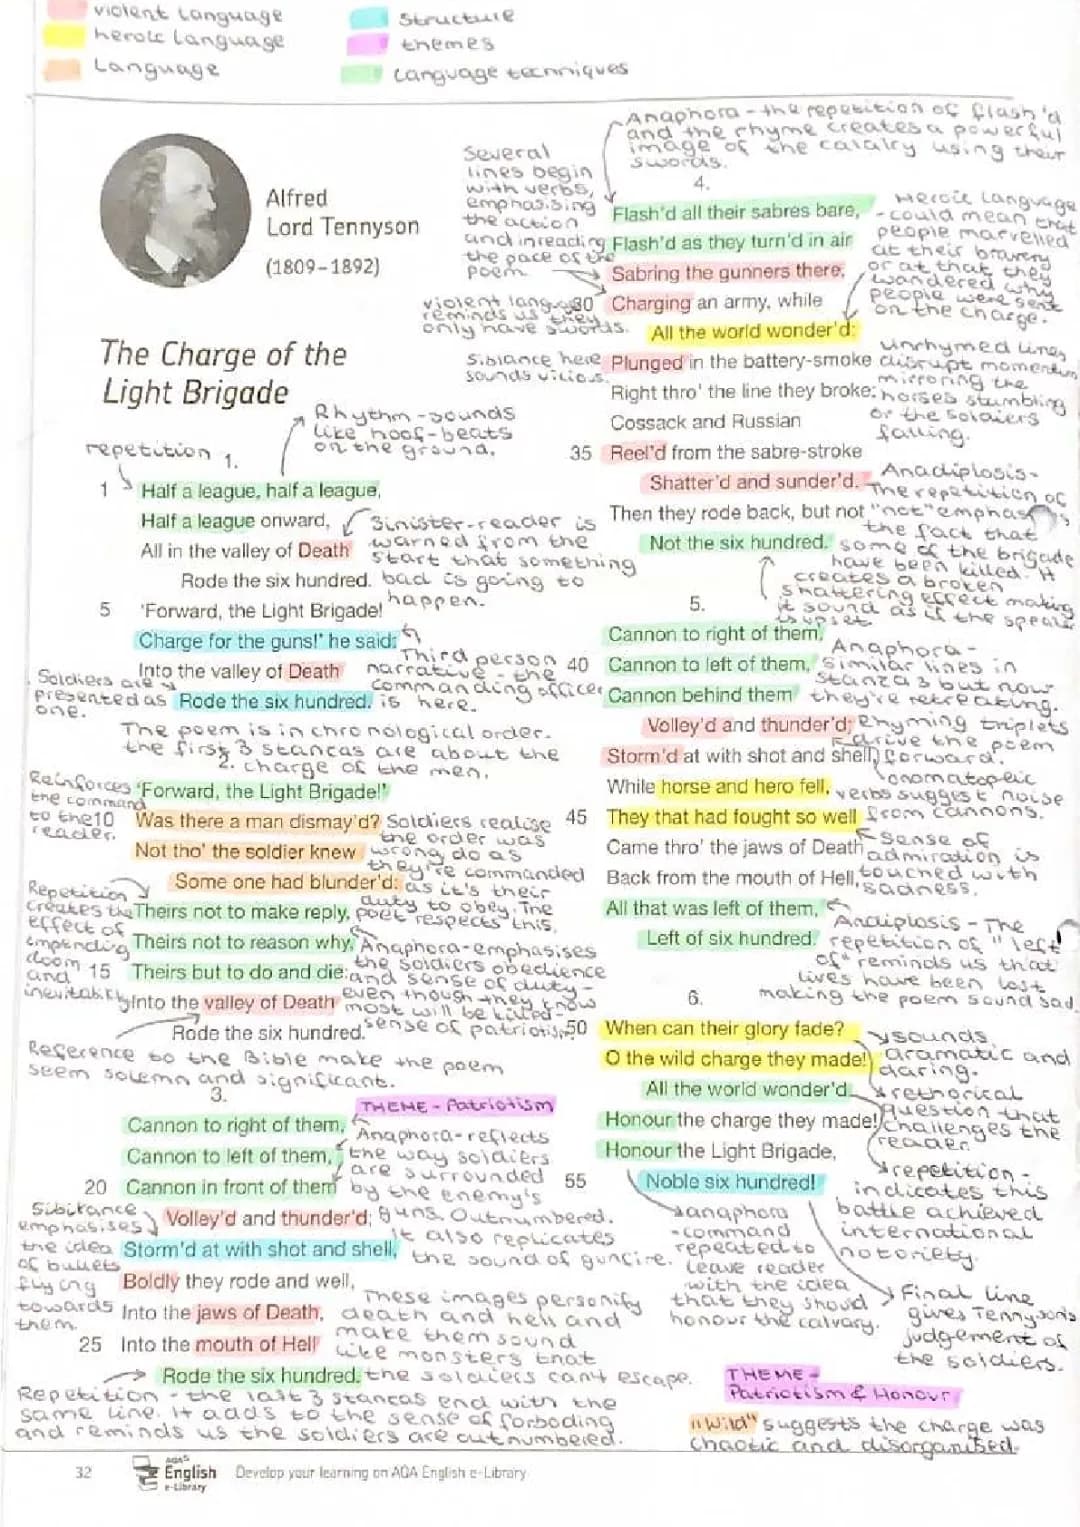 violent language
heroic language
Language
Structure
themes
Language techniques
Alfred
Lord Tennyson
(1809–1892)
The Charge of the
Light Brigade
Rhythm - sounds
like hoof-beats
on the ground.
repetition
1.
1 Half a league, half a league,
Half a league onward,
All in the valley of Death
Rode the six hundred.
Sinister - reader is
warned from the
start that something
bad is going to
happen.
5 'Forward, the Light Brigade!
Charge for the guns!' he said:
Into the valley of Death
Rode the six hundred.
Third person
narrative - the
commanding officer
is here.
Soldiers are
presented as
one.
The poem is in chronological order.
the first 3 stancas are about the
charge of the men.
2.
'Forward, the Light Brigade!'
Reinforces
the command
to the
reader.
10 Was there a man dismay'd?
Not tho' the soldier knew
Some one had blunder'd:
Soldiers realise
the order was
wrong do as
they're commanded
as it's their
duty to obey. The
poet respects this.
Theirs not to make reply,
Theirs not to reason why,
15 Theirs but to do and die:
Into the valley of Death
Rode the six hundred.
Repetition
creates the
effect of
impending
doom
and
inevitability
Anaphora - emphasises
the soldiers obedience
and sense of duty -
even though they know
most will be killed -
sense of patriotism
Reference to the Bible make the poem
seem solemn and significant.
3.
THEME - Patriotism
Cannon to right of them,
Cannon to left of them,
20 Cannon in front of them
Volley'd and thunder'd;
Storm'd at with shot and shell,
Boldly they rode and well,
Into the jaws of Death,
25 Into the mouth of Hell
Rode the six hundred.
Anaphora - reflects
the way soldiers
are surrounded
by the enemy's
guns. Outnumbered.
It also replicates
the sound of gunfire.
Sibilance
emphasises
the idea
of bullets
flying
towards
them.
These images personify
death and hell and
make them sound
like monsters that
the soldiers can't escape.
Repetition - the last 3 stancas end with the
same line. It adds to the sense of forboding
and reminds us the soldiers are outnumbered.
Anaphora - the repetition of flash'd
and the rhyme creates a powerful
image of the calalry using their
swords.
Several
lines begin
with verbs,
emphasising
the action
and inreading
the pace of the
poem
4.
Flash'd all their sabres bare,
Flash'd as they turn'd in air
Sabring the gunners there,
30 Charging an army, while
All the world wonder'd:
Plunged in the battery-smoke
Right thro' the line they broke;
Cossack and Russian
35 Reel'd from the sabre-stroke
Shatter'd and sunder'd.
Then they rode back, but not
Not the six hundred.
Heroic language
- could mean that
people marvelled
at their bravery
or at that they
wandered why
people were sent
on the charge.
violent language
reminds us they
only have swords.
Siblance here
sounds vicious.
Unrhymed lines
disrupt momentum
mirroring the
horses stumbling
or the soldiers
falling.
Anadiplosis -
The repetition of
"not" emphasises
the fact that
some of the brigade
have been killed. It
creates a broken
shattering effect making
it sound as if the speaker
is upset
5.
Cannon to right of them,
40 Cannon to left of them,
Cannon behind them
Volley'd and thunder'd;
Storm'd at with shot and shell,
While horse and hero fell,
45 They that had fought so well
Came thro' the jaws of Death
Back from the mouth of Hell,
All that was left of them,
Left of six hundred.
Anaphora -
similar lines in
stanza 3 but now
they're retreating.
Rhyming triplets
drive the poem
forward.
onomatopeic
verbs suggest noise
from cannons.
Sense of
admiration is
touched with
sadness.
Andiplosis - The
repetition of "left
of" reminds us that
lives have been lost
making the poem sound sad.
6.
50 When can their glory fade?
O the wild charge they made!
All the world wonder'd.
Honour the charge they made!
Honour the Light Brigade,
55 Noble six hundred!
sounds
dramatic and
daring.
rethorical
question that
challenges the
reader.
repetition -
indicates this
battle achieved
international
notoriety.
anaphora
- command
repeated to
leave reader
with the idea
that they should
honour the calvary.
Final line
gives Tennysons
judgement of
the soldiers.
THEME -
Patriotism & Honour
"Wild" suggests the charge was
chaotic and disorganised.
32
AQA's
English
e-Library
Develop your learning on AQA English e-Library